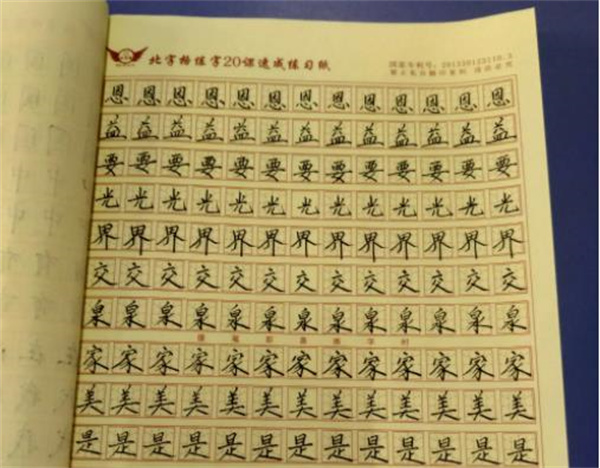 北字格练字20课速成练习纸
国家专利号:
恩恩恩恩恩恩恩恩恩恩恩恩恩
益益益益益益益益益益益益益
要要要要要要要要要要要要要
光光光光光光光光光光光光光
界界界界界界界界界界界界界
交交交交交交交交交交交交交
泉泉泉泉泉泉泉泉泉泉泉泉泉
家家家家家家家家家家家家家
美美美美美美美美美美美美美
是是是是是是是是是是是是是